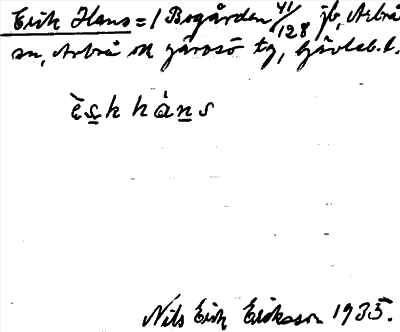 Erik Hans = 1 Bogården 41/128 jb, Arbrå
sn, Arbrå ok gårdsö tg, Gävleb. l.
è s̲ k h à n̲ s
Nils Erik Eriksson 1935.